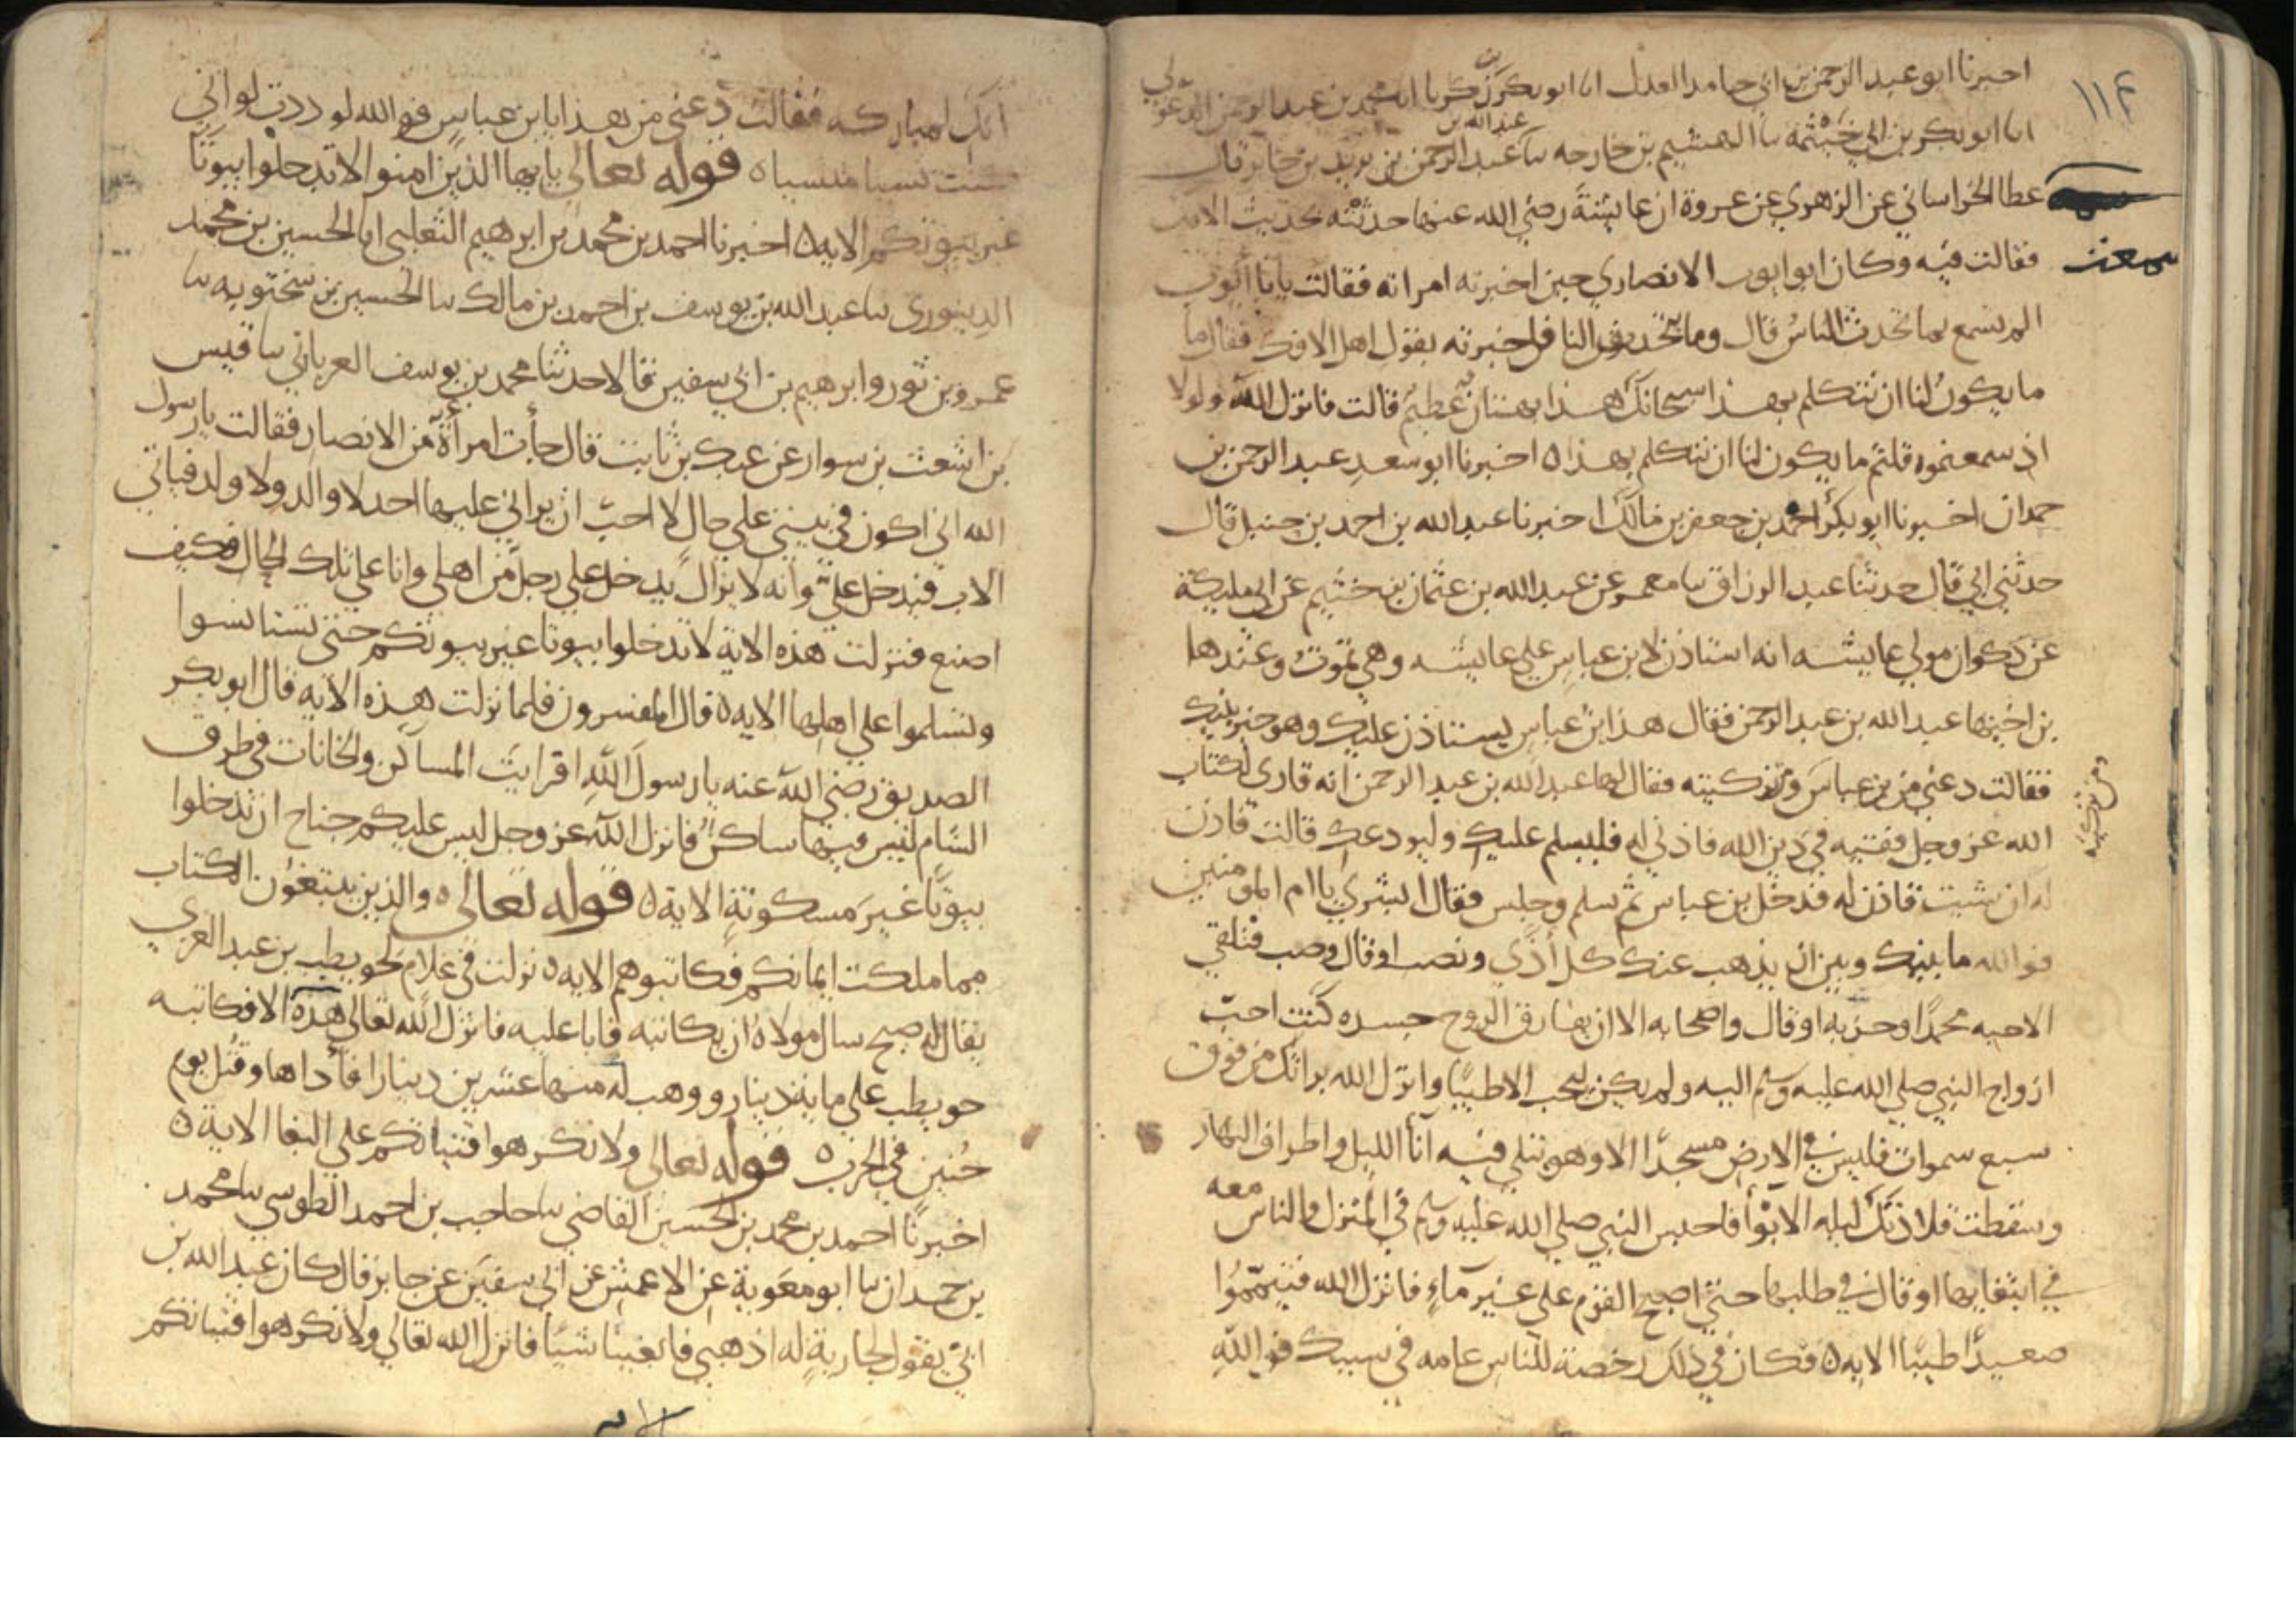 ١١٢
اخبرنا ابو عبد الرحمن بن ابي حامد العدل انا ابو بكر بن زكريا انا محمد بن عبد الرحمن الدغولي
انا ابو بكر بن ابي خيثمة نا الهيثم بن خارجه نا عبد الله بن عبد الرحمن بن يزيد بن جابر قال
سمعت
عطا الخراساني عن الزهري عن عروة ان عايشة رضي الله عنها حدثته بحديث الافك
فقالت فيه وكان ابو ايوب الانصاري حين اخبرته امراته فقالت يابا ايوب
الم تسمع بما تحدث الناس قال وما يتحدثون الناس فاخبرته بقول اهل الافك فقال ما
ما يكون لنا ان نتكلم بهذا سبحانك هذا بهتان عظيم قالت فانزل الله ولولا
اذ سمعتموه قلتم ما يكون لنا ان نتكلم بهذا ه اخبرنا ابو سعد عبد الرحمن بن
حمدان اخبرنا ابو بكر احمد بن جعفر بن مالك اخبرنا عبد الله بن احمد بن حنبل قال
حدثني ابي قال حدثنا عبد الرزاق نا معمر عن عبد الله بن عثمان بن خثيم عن ابي مليكة
عن ذكوان مولي عايشه انه استاذن لابن عباس علي عايشه وهي تموت وعندها
بن اخيها عبد الله بن عبد الرحمن فقال هذا ابن عباس يستاذن عليك وهو خير بنيك
فقالت دعني من بن عباس وتزكيته فقال لها عبد الله بن عبد الرحمن انه قارى لكتاب
ومن تزكيته
الله عز وجل فقيه في دين الله فاذني له فليسلم عليك وليودعك قالت فاذن
له ان شيت فاذن له فدخل بن عباس ثم سلم وجلس فقال ابشري يا ام المومنين
فوالله ما بينك وبين ان يذهب عنك كل اذي ونصب او قال وصب فتلقي
الاحبه محمدا وحزبه او قال واصحابه الا ان يفارق الروح جسده كنت احب
ازواج النبي صلي الله عليه وسلم اليه ولم يكن يحب الا طيبا وانزل الله براتك من فوق
سبع سموات فليس في الارض مسجدا الا وهو تتلي فيه انا الليل واطراف النهار
وسقطت قلادتك ليله الابوا فاحتبس النبي صلي الله عليه وسلم في المنزل والناس معه
في ابتغايها او قال في طلبها حتي اصبح القوم على غير ماء فانزل الله فتيمموا
صعيدا طيبا الايه ه فكان في ذلك رخصة للناس عامه في سببك فوالله
انك لمباركه فقالت دعني من هذا يابن عباس فو الله لو ددت لو اني
كنت نسيا منسيا ه قوله تعالى يايها الذين امنوا لا تدخلوا بيوتا
غير بيوتكم الايه ه اخبرنا احمد بن محمد بن ابرهيم الثعلبي انا الحسين بن محمد
الدينوري نا عبد الله بن يوسف بن احمد بن مالك نا الحسين بن سختويه نا
عمرو بن ثور وابرهيم بن ابي سفين قالا حدثنا محمد بن يوسف الفرياني نا قيس
بن اشعث بن سوار عن عدي بن ثابت قال جأت امرأة من الانصار فقالت يا رسول
الله اني اكون في بيتي على حال لا احب ان يراني عليها احد لا والد ولا ولد فياتي
الاب فيدخل علي وانه لا يزال يدخل علي رجل من اهلي وانا على تلك الحال فكيف
اصنع فنزلت هذه الاية لا تدخلوا بيوتا غير بيوتكم حتي تستانسوا
وتسلموا علي اهلها الايه ه قال المفسرون فلما نزلت هذه الايه قال ابو بكر
الصديق رضي الله عنه يا رسول الله افرايت المساكن والخانات في طرق
الشام ليس فيها ساكن فانزل الله عز وجل ليس عليكم جناح ان تدخلوا
بيوتا غير مسكونة الاية ه قوله تعالى ه والذين يبتغون الكتاب
مما ملكت ايمانكم فكاتبوهم الايه ه نزلت في غلام لحويطب بن عبد العزي
يقال له صبيح سال مولاه ان يكاتبه فابا عليه فانزل الله تعالى هذه الا فكاتبه
حويطب على ماية دينار ووهب له منها عشرين دينارا فأداها وقتل يوم
حنين في الحرب ه قوله تعالى ولا تكرهوا فتياتكم علي البغا الاية ه
اخبرنا احمد بن محمد بن الحسين القاضي نا حاجب بن احمد الطوسي نا محمد
بن حمدان نا ابو معوية عن الاعمش عن ابي سفين عن جابر قال كان عبد الله بن
ابي يقول لجارية له اذهبي فابغينا شيا فانزل الله تعالي ولا تكرهوا فتياتكم